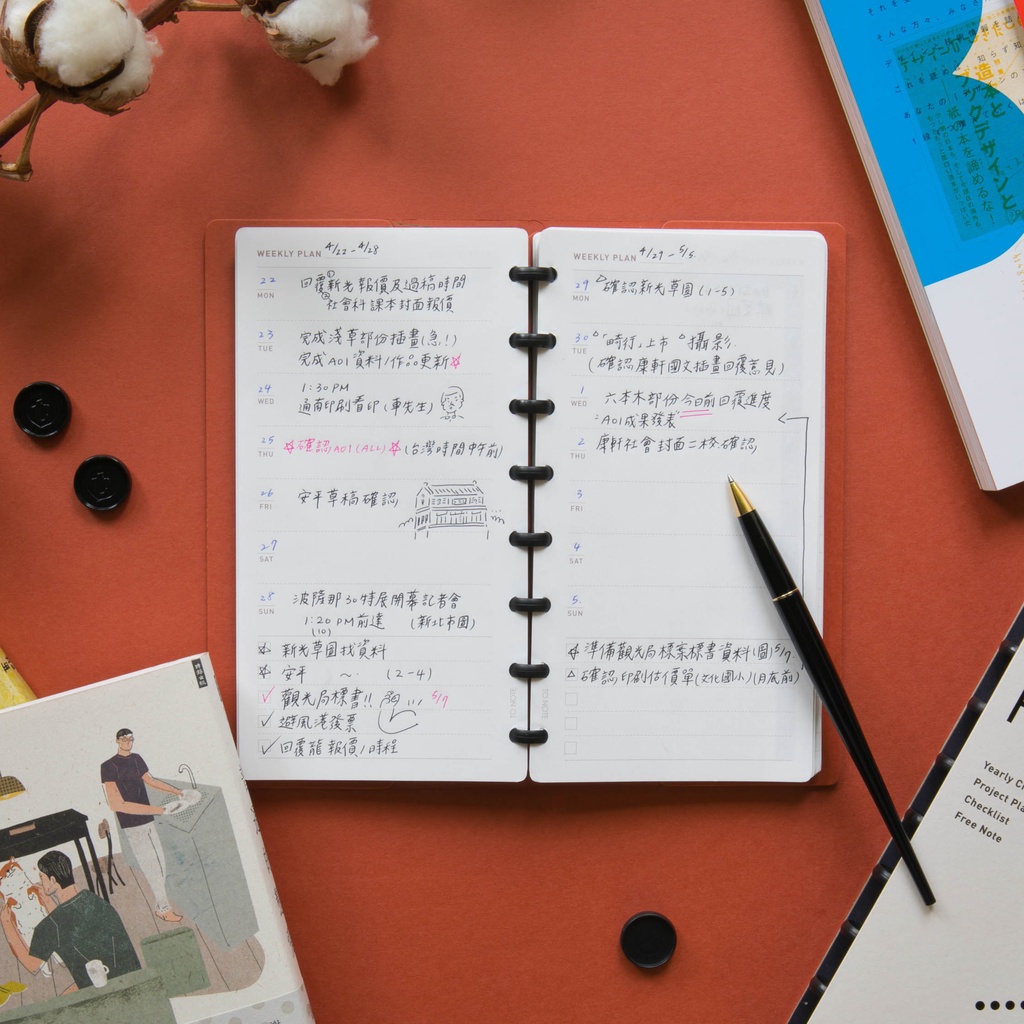 WEEKLY PLAN 4/22 - 4/28
22 MON 回覆①新光報價及過稿時間
②社會科課本封面報價
23 TUE 完成淺草部份插畫(急!)
完成AOI資料/作品更新
24 WED 1:30 PM
通南印刷看印(車先生)
25 THU 確認AOI(ALL) (台灣時間中午前)
26 FRI 安平草稿確認
27 SAT
28 SUN 波薩那30特展開幕記者會
1:20 PM前達 (新北市圖)
(10)
新光草圖找資料
安平 ～. (2-4)
觀光局標書!! ... 5/7
避風港發票
回覆龍 報價/時程
WEEKLY PLAN 4/29 - 5/5
29 MON 確認新光草圖(1-5)
30 TUE 「時行」上市 攝影.
(確認康軒國文插畫回覆意見)
1 WED 六本木部份今日前回覆進度
AOI成果發表
2 THU 康軒社會封面二校確認
3 FRI
4 SAT
5 SUN
準備觀光局標案標書資料(圖)5/7.
確認印刷估價單(文化國小)(月底前)
造本と
ブックデザインと
紙の本を諦めるな!
Yearly
Project
Checklist
Free Note